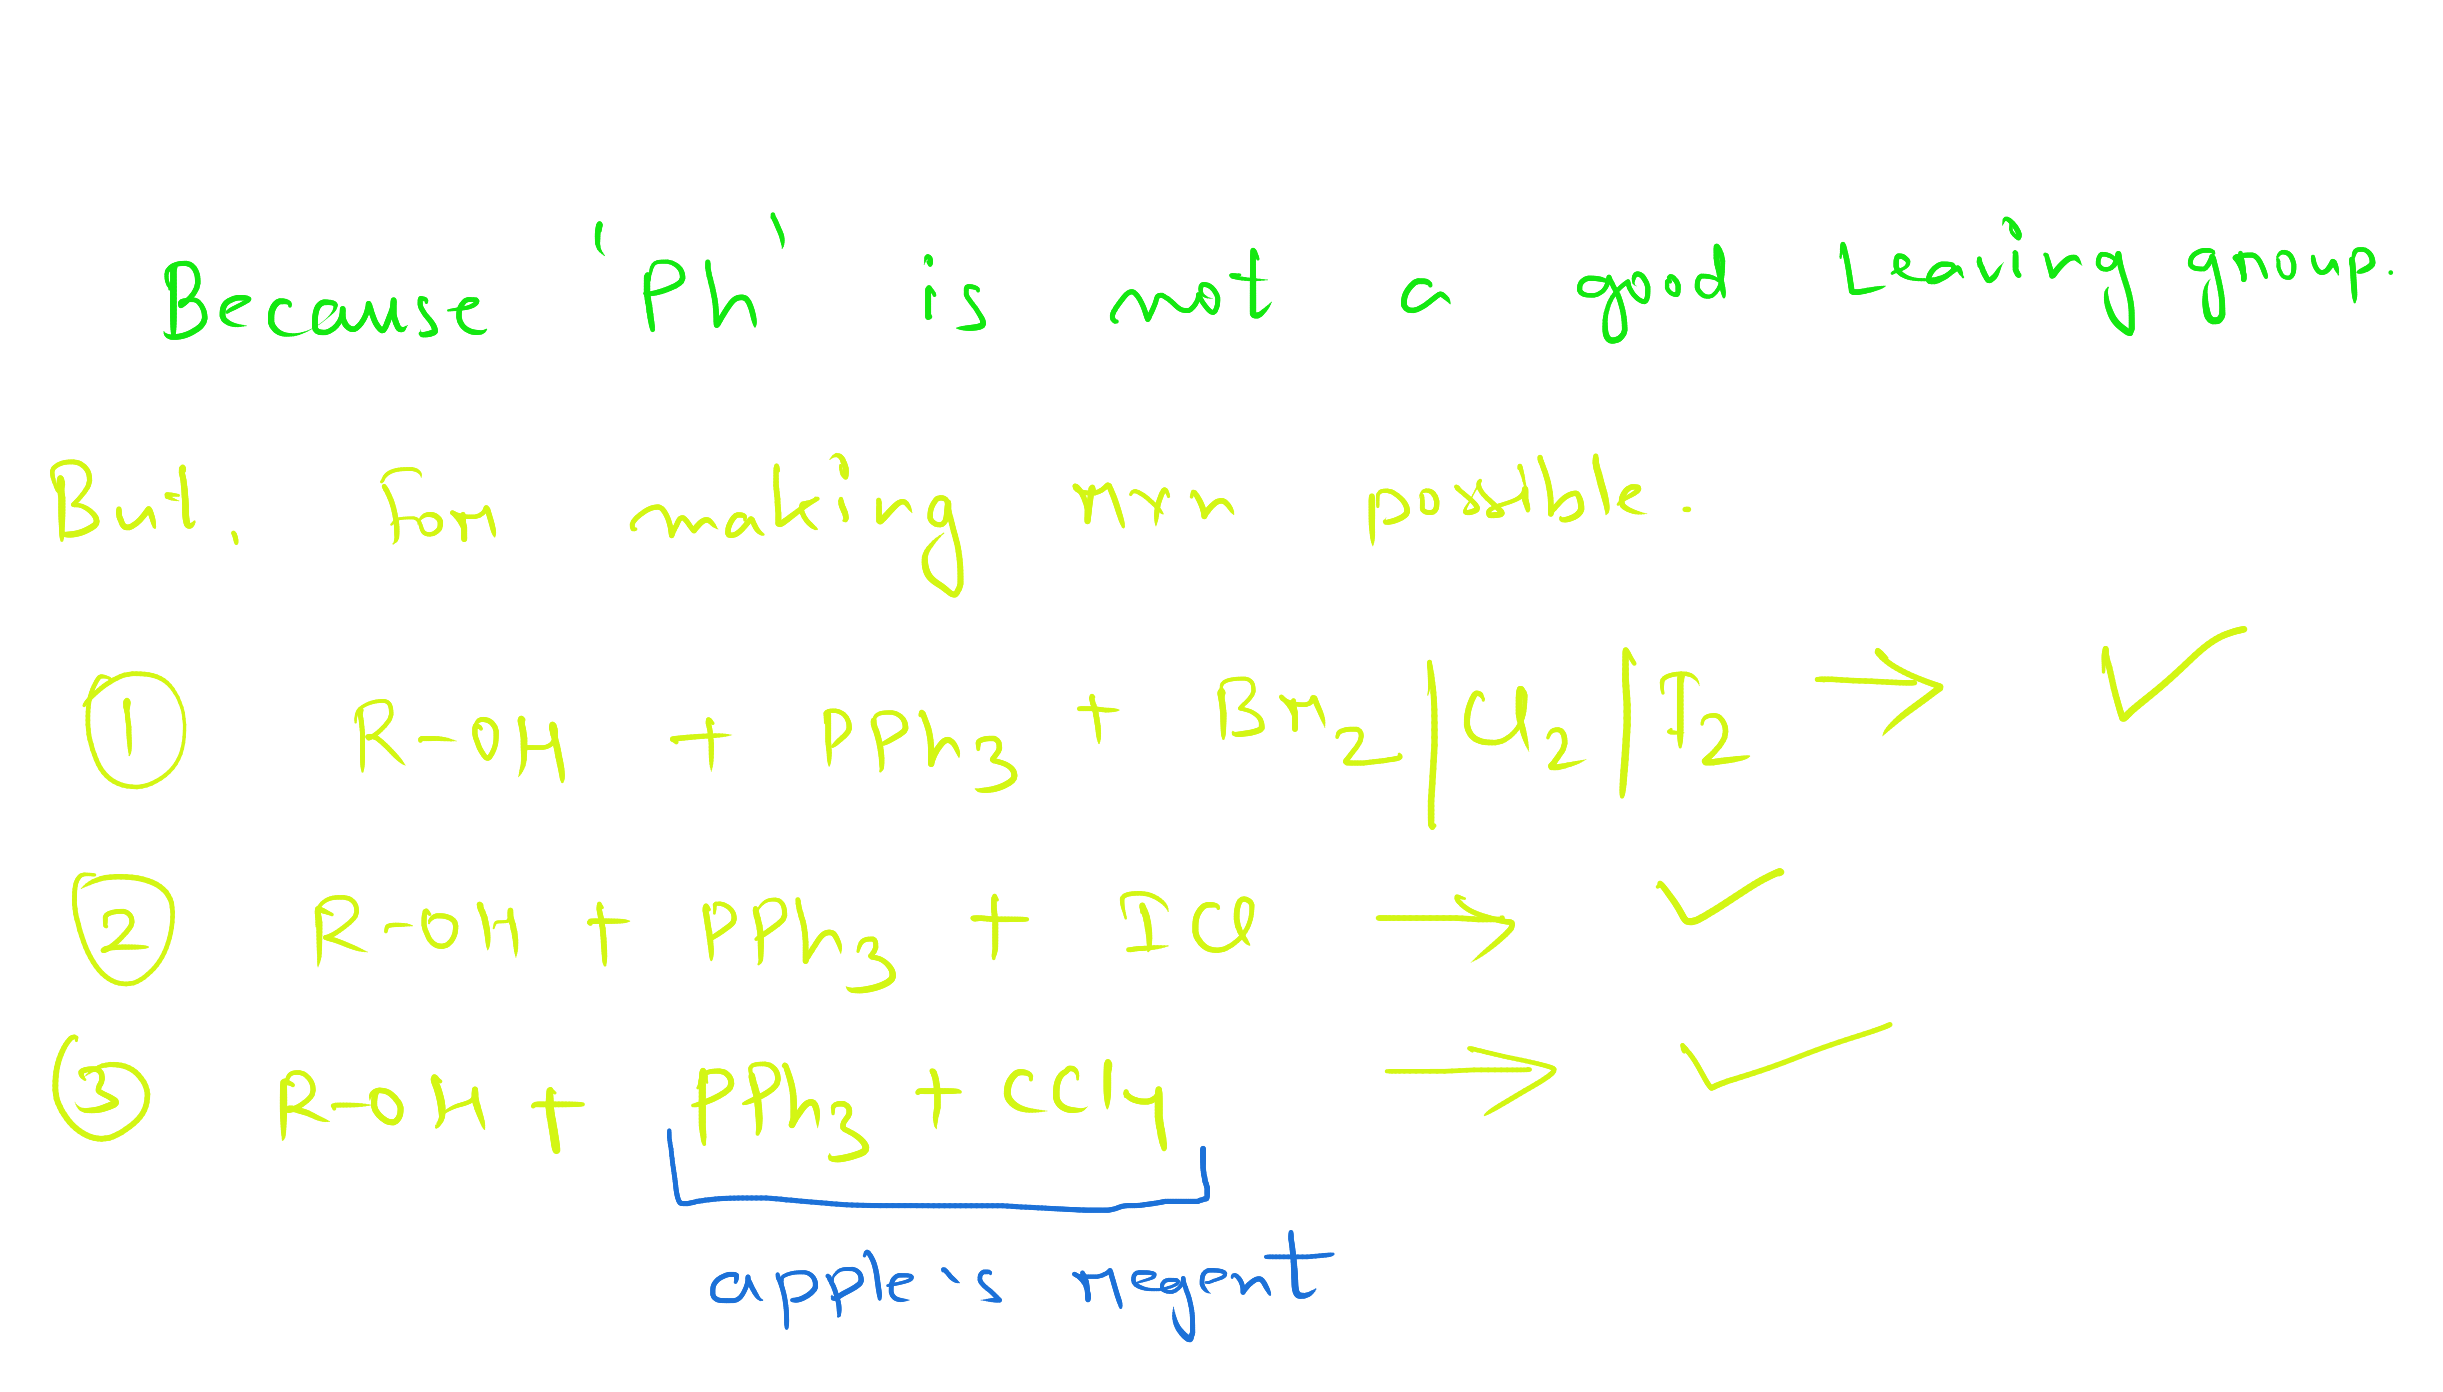 Because 'Ph' is not a good Leaving group.
But, For making rxn possible.
① R-OH + PPh3 + Br2|Cl2|I2 → ✓
② R-OH + PPh3 + ICl → ✓
③ R-OH + PPh3 + CCl4 → ✓
apple's regent